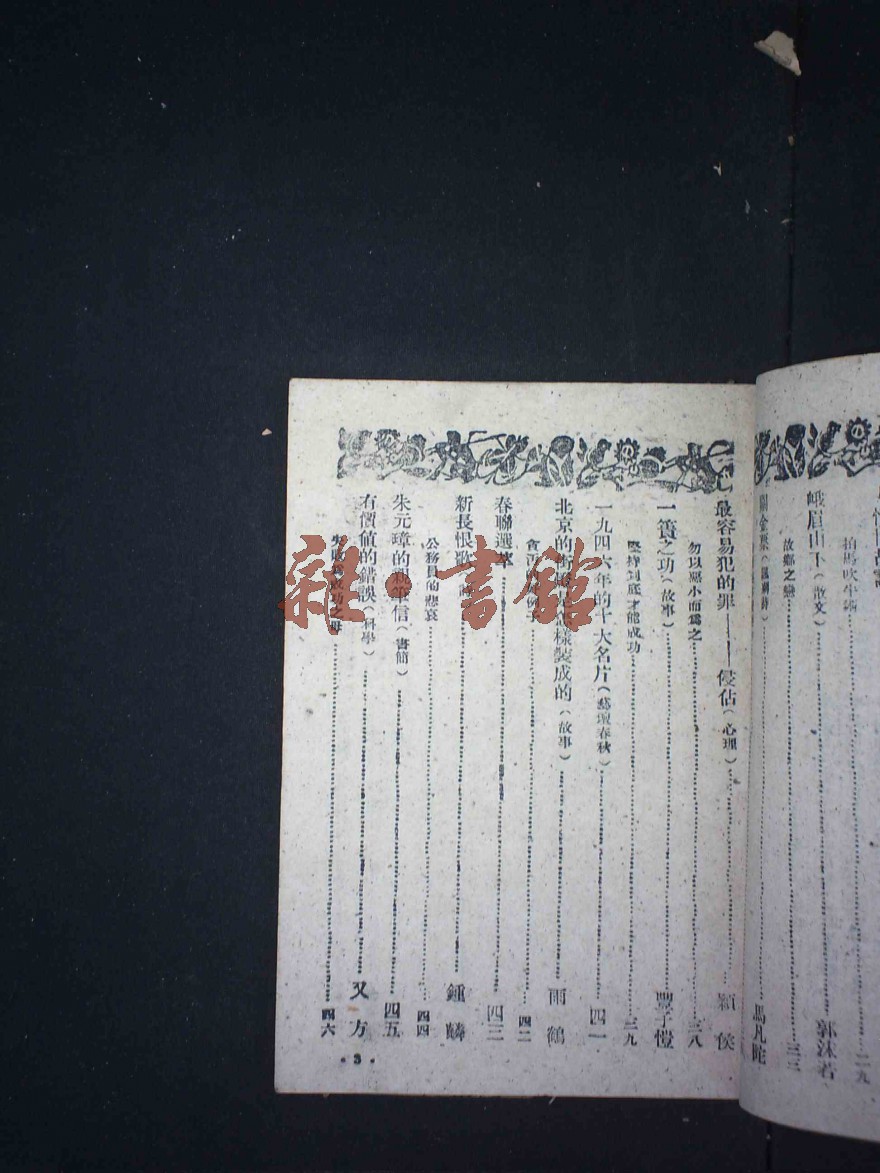 拍馬吹牛
二九
峨眉山下（散文）郭沫若
故鄉之戀 三三
關金票（諷刺詩）馬凡陀
最容易犯的罪——侵佔（心理）穎侯
勿以惡小而爲之 三八
一簣之功（故事）豐子愷
堅持到底才能成功 三九
一九四六年的十大名片（藝壇春秋） 四一
北京的樣裝成的（故事）雨鶴
四二
春聯選萃 四三
新長恨歌 鍾麟
公務員的悲哀 四四
朱元璋的親筆信（書簡） 四五
有價值的錯誤（科學）又方
失敗爲成功之母 四六
·3·
雜·書館